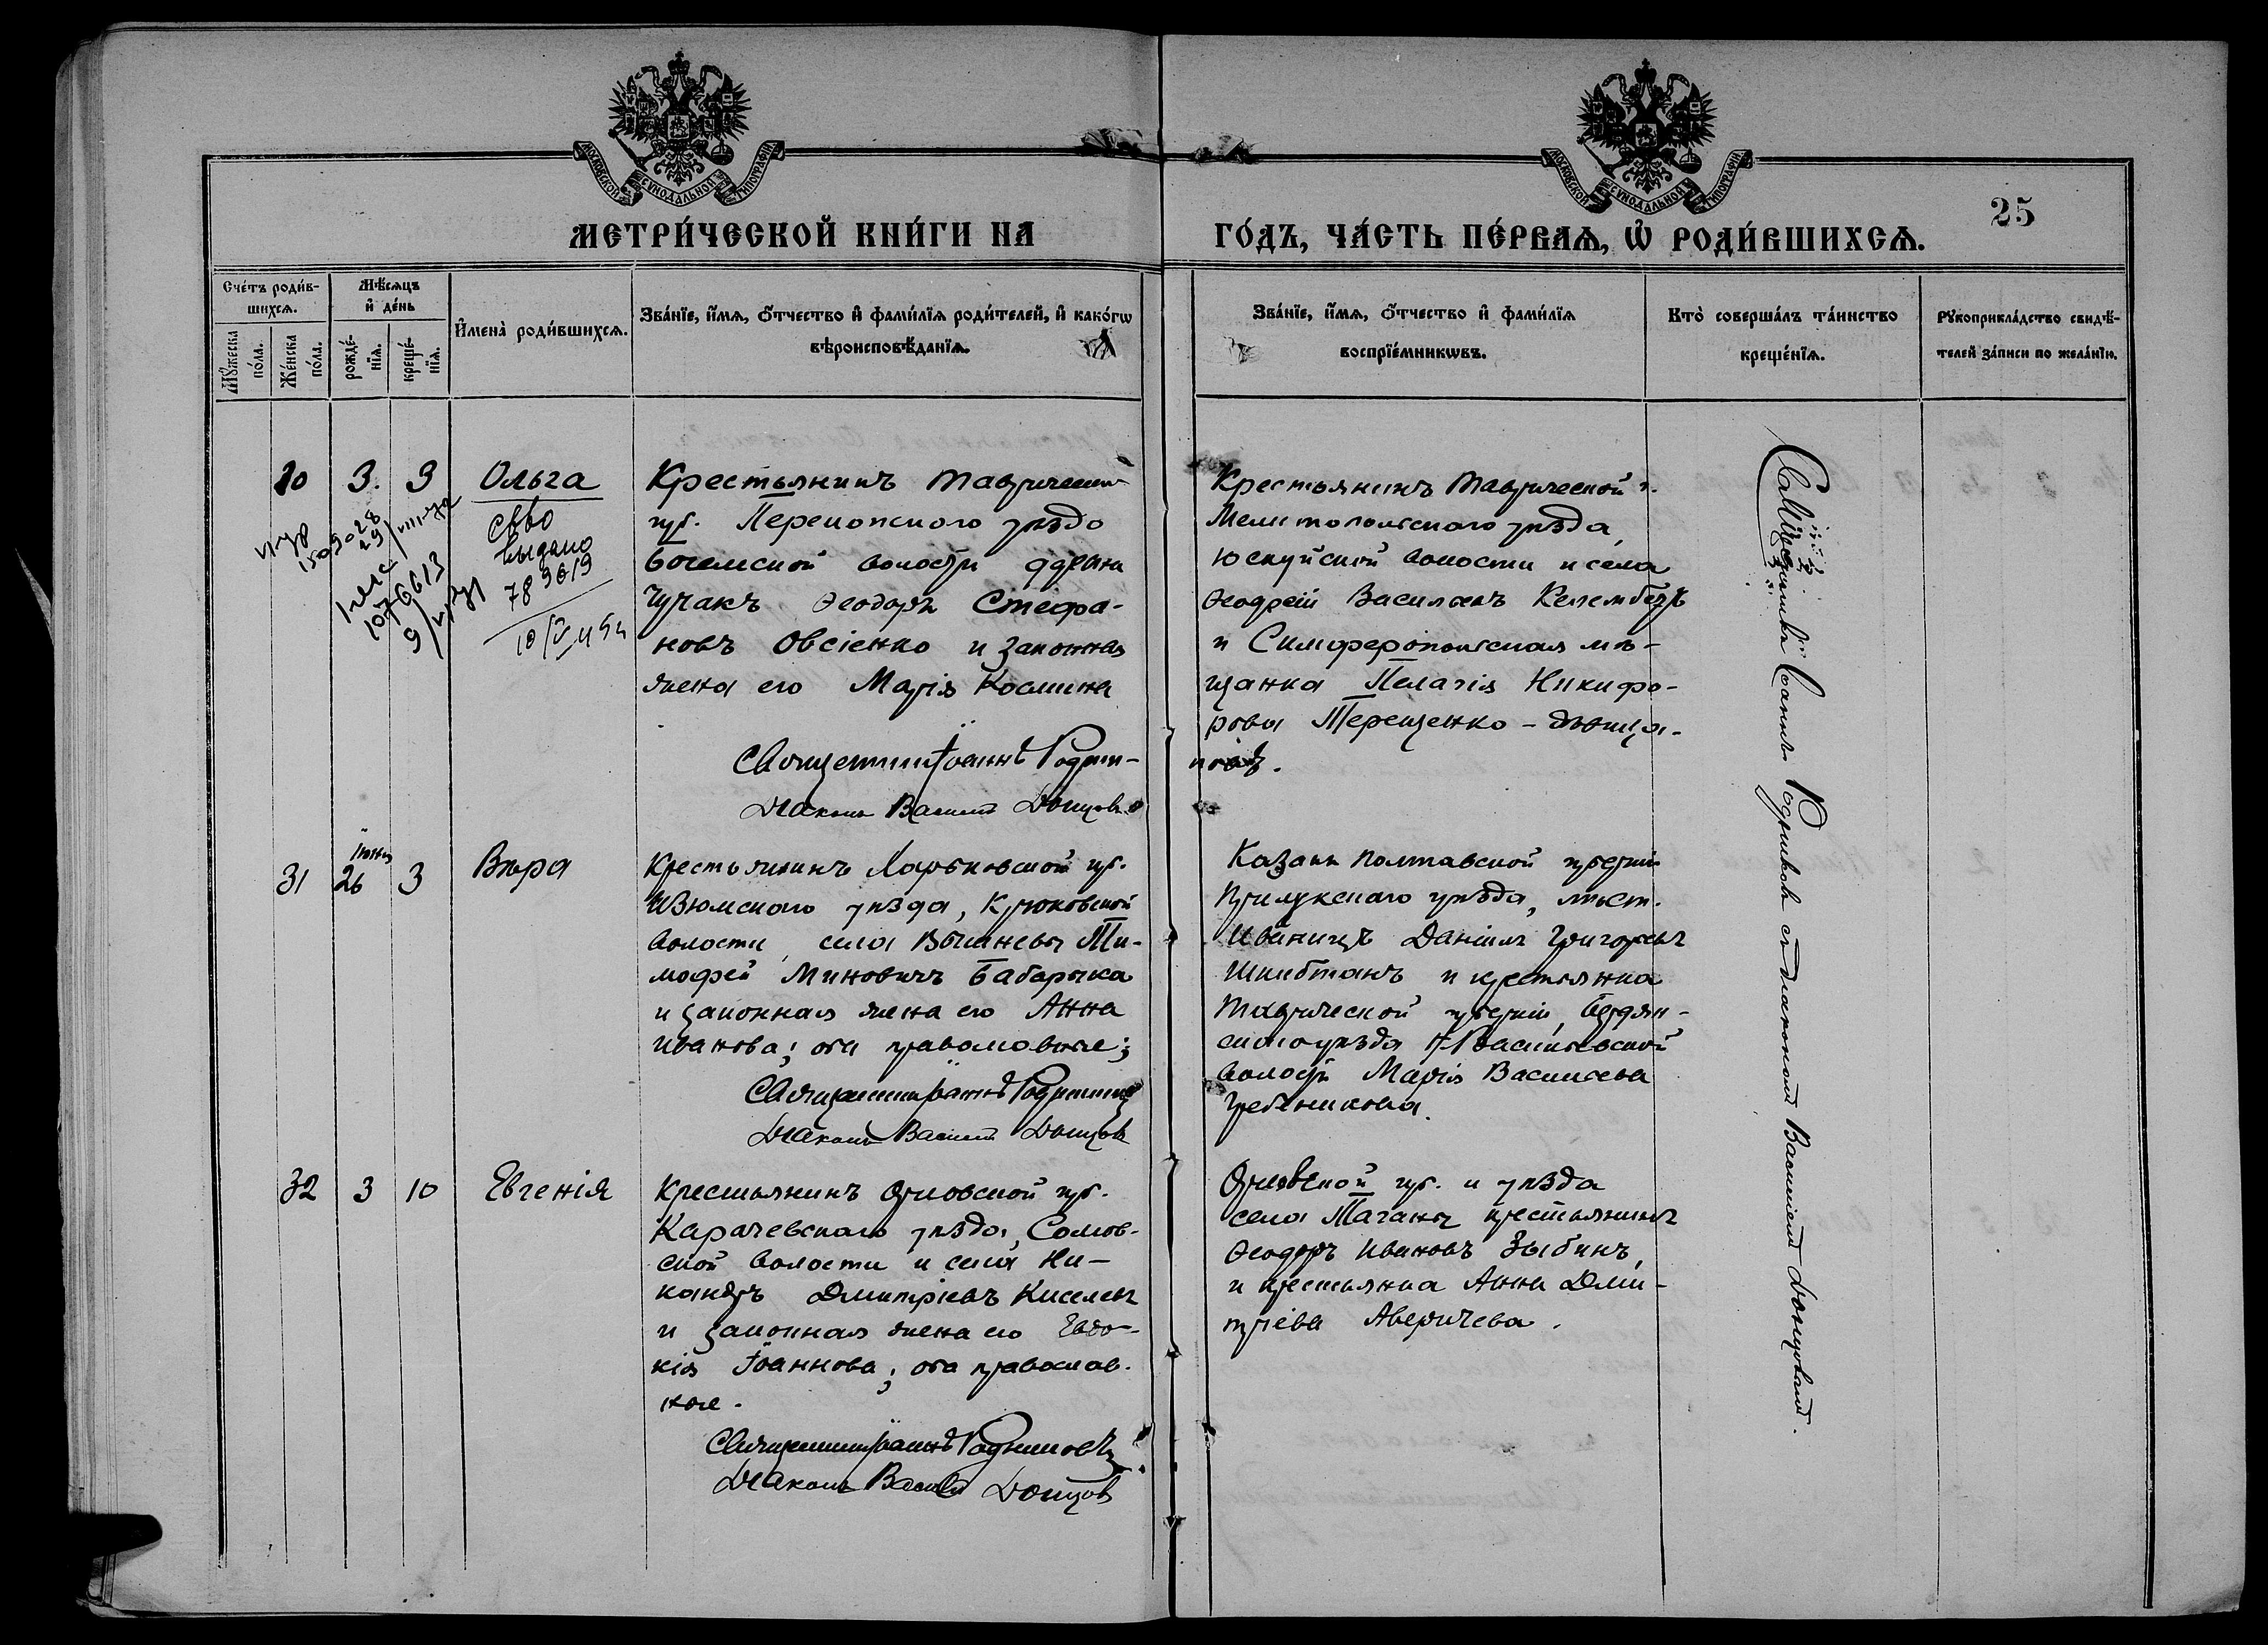 МОСКОВСКОЙ СѴНОДАЛЬНОЙ ТИПОГРАФІИ
МОСКОВСКОЙ СѴНОДАЛЬНОЙ ТИПОГРАФІИ
25
МЕТРИ́ЧЕСКОЙ КНИ́ГИ НА
ГО́ДЪ, ЧА́СТЬ ПЕ́РВАЯ, Ѽ РОДИ́ВШИХСЯ.
Сче́тъ роди́в-
шихся.
Мꙋ́жеска
по́ла.
Же́нска
по́ла.
Мѣ́сяцъ
и҆ де́нь
рожде́-
нія.
креще́-
нія.
И҆мена̀ роди́вшихся.
Зва́ніе, и҆́мя, ѻ҆́тчество и҆ фами́лія роди́телей, и҆ како́гѡ
вѣроисповѣ́данія.
Зва́ніе, и҆́мя, ѻ҆́тчество и҆ фами́лія
воспріе́мникѡвъ.
Кто̀ соверша́лъ та́инство
креще́нія.
Рꙋкоприкла́дство свидѣ́-
телей за́писи по жела́нію.
30 3. 3 Ольга
с-во
выдано
789619
1076613
Крестьянинъ Таврической
губ. Перекопскаго уѣзда
Богемской волости деревни
Чучакъ Ѳеодоръ Стефа-
новъ Овсіенко и законная
жена его Марія Космина
Священникъ Іоаннъ Родник
Діаконъ Василій Донцовъ
Крестьянинъ Таврической г.
Мелитопольскаго уѣзда,
Юскуйской волости и села
Василіевъ Келембетъ
и Симферопольская мѣ-
щанка Пелагія Никифо-
рова Терещенко - дѣвица.
31 Іюня 26 3 Вѣра
Крестьянинъ Харьковской губ.
Изюмскаго уѣзда, Крюковской
волости, села Ти-
мофей Миновичъ Бабарыка
и законная жена его Анна
Иванова; оба православные;
Священникъ Іоаннъ Родниковъ
Діаконъ Василій Донцовъ
Казакъ Полтавской губерніи
Прилукскаго уѣзда, мѣст.
Иваницъ Даніилъ Григорьевъ
и крестьянка
Таврической губерніи, Бердян-
скаго уѣзда Н-Васильевской
волости Марія Васильева
Гребенникова.
32 3 10 Евгенія
Крестьянинъ Орловской губ.
Карачевскаго уѣзда, Сомов-
ской волости и села Ни-
кандръ Дмитріевъ Киселевъ
и законная жена его Евдо-
кія Іоаннова; оба православ-
ные.
Священникъ Іоаннъ Родниковъ
Діаконъ Василій Донцовъ
Орловской губ. и уѣзда
села крестьянинъ
Ѳеодоръ Ивановъ Зыбинъ,
и крестьянка Анна Дми-
тріева Аверичева.
Священникъ Іоаннъ Родниковъ съ діакономъ Василіемъ Донцовымъ.